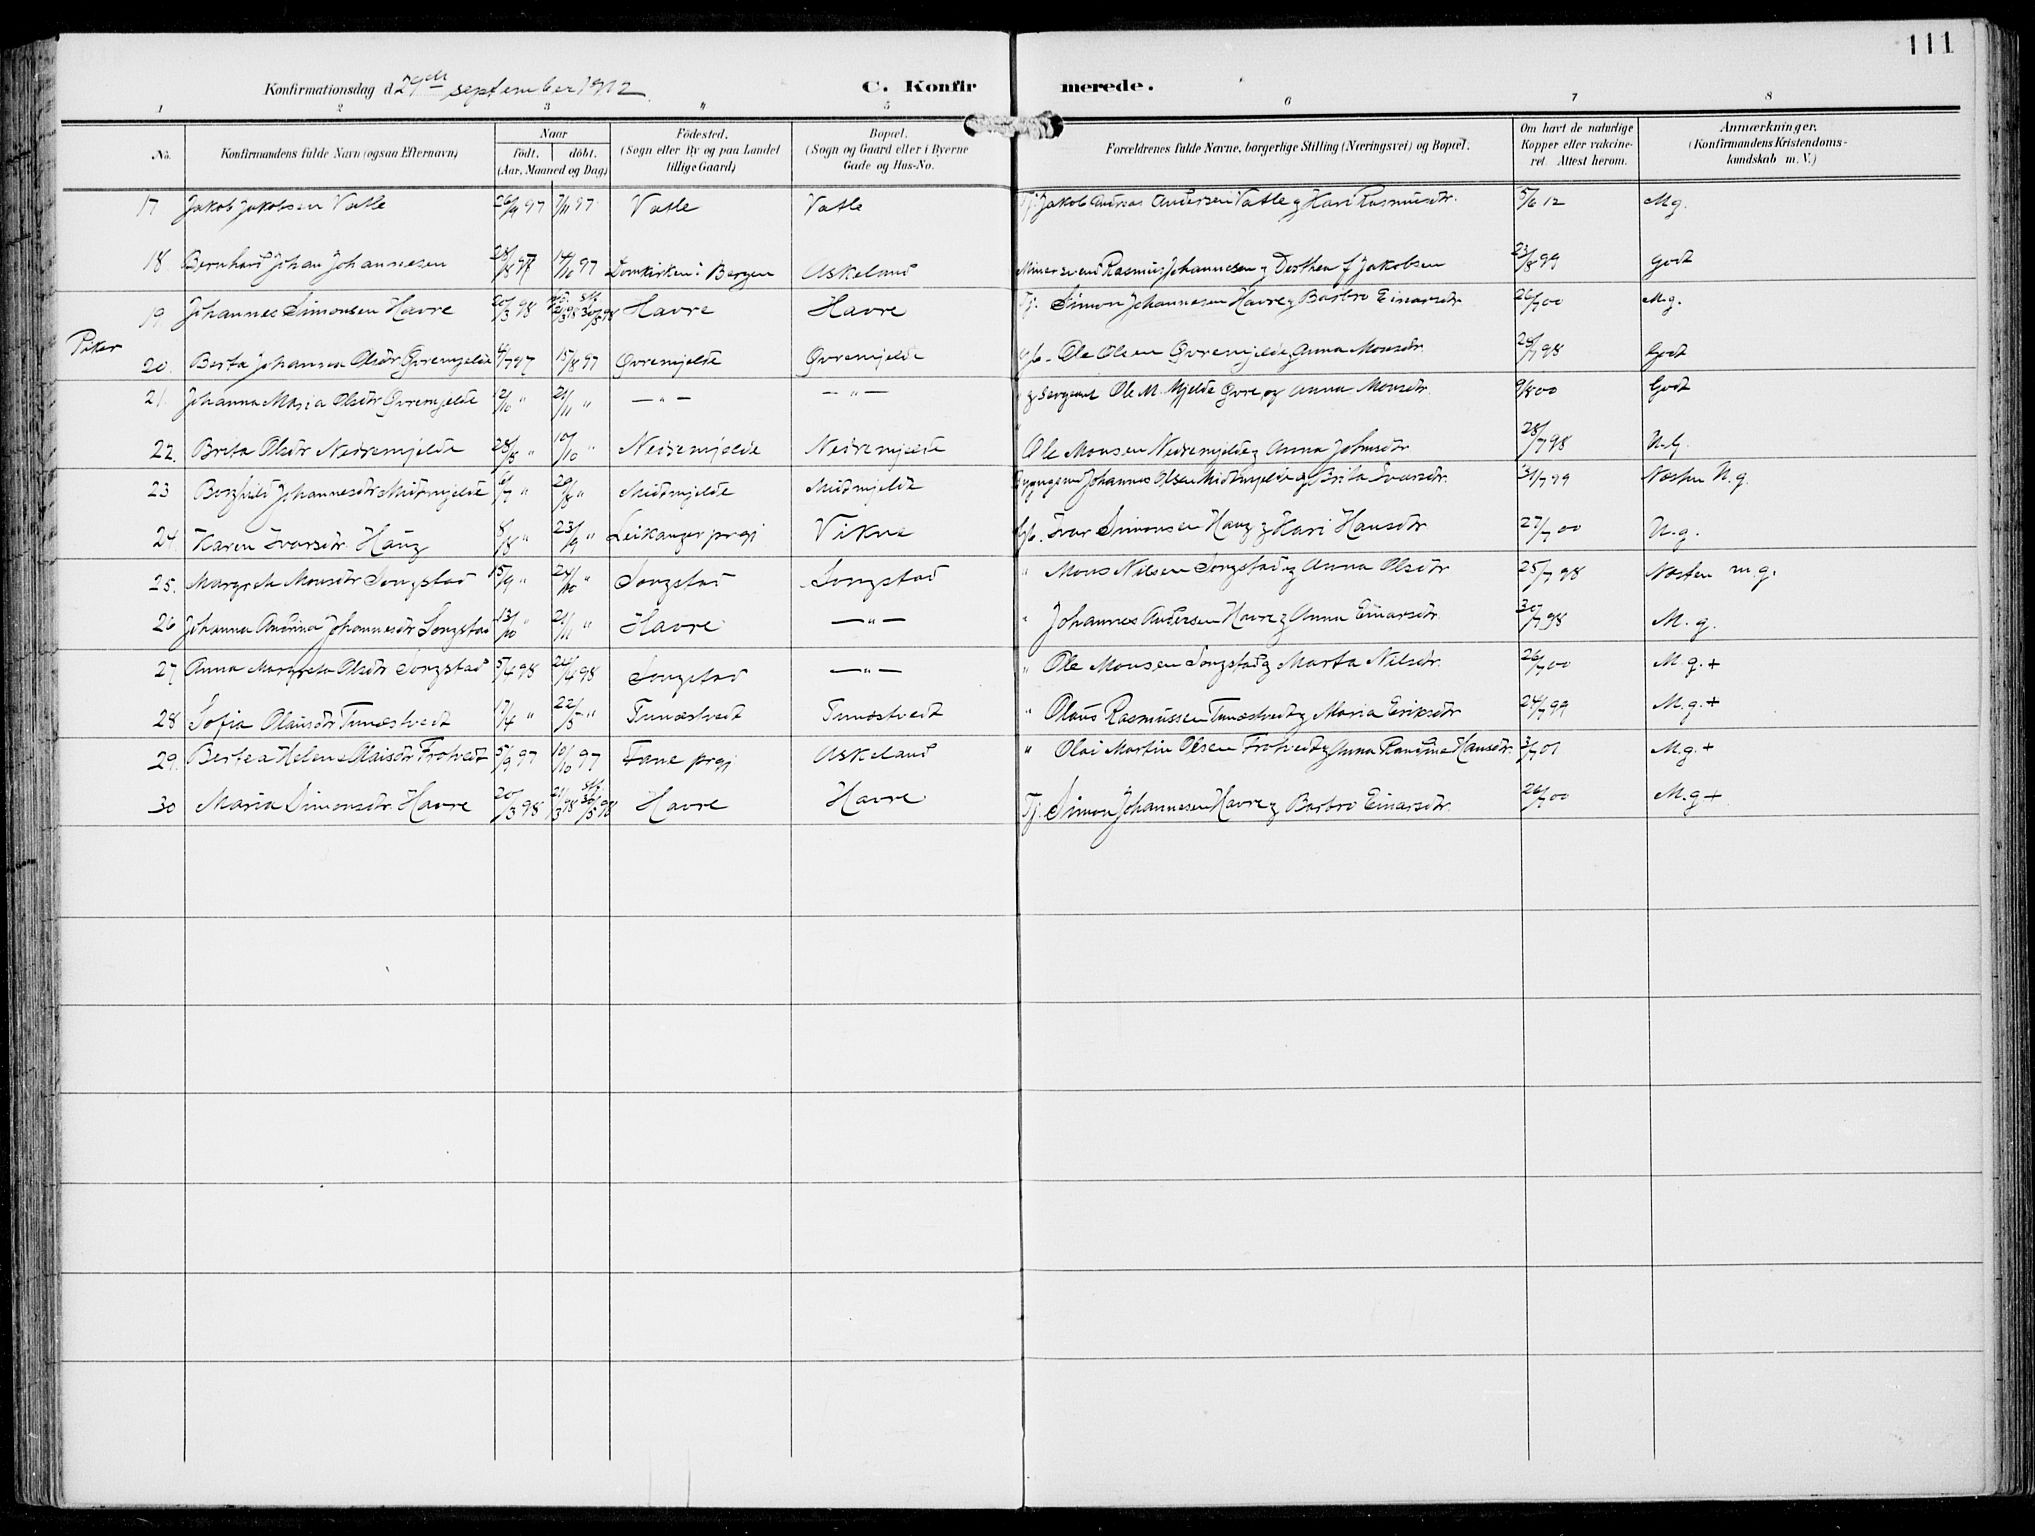 111
Konfirmationsdag d. 29de september 1912 C. Konfirmerede.
1 2 3 " 5 6 7 8
No. Konfirmandens fulde Navn (ogsaa Efternavn) Naar födt, döbt. (Aar, Maaned og Dag) Födested. (Sogn eller By og paa Landet tillige Gaard) Bopæl. (Sogn og Gaard eller i Byerne Gade og Hus-No. Forældrenes fulde Navne, borgerlige Stilling (Næringsvei) og Bopæl. Om havt de naturlige Kopper eller vakcineret. Attest herom. Anmærkninger. (Konfirmandens Kristendomskundskab m. V.)
17 Jakob Jakobsen Vatle 26/9 97 7/11 97 Vatle Vatle Tj. Jakob Andreas Andersen Vatle g Kari Rasmusdtr. 5/6 12 M.g.
18. Bernhard Johan Johannesen 28/8 97 14/10 97 Domkirken i Bergen Askeland Minersvend Rasmus Johannesen g Dorthea f Jakobsen 23/8 99 godt
19 Johannes Simonsen Havre 20/3 98 21/3 98 30/5 98 Havre Havre Tj. Simon Johannesen Havre g Barbro Einarsdtr. 26/7 00 M.g.
Piker
20. Berta Johanna Olsdtr Øvremjelde 4/7 97 15/8 97 Øvremjelde Øvremjelde Gb. Ole Olsen Øvremjelde g Anna Monsdtr. 28/7 98 Godt
21. Johanna Maria Olsdtr Øvremjelde 2/10 " 21/11 " — " — — " — " g sergeant Ole M. Mjelde Øvre, og Anna Monsdtr. 9/8 00 Godt
22. Brita Olsdtr Nedremjelde 28/8 " 10/10 " Nedremjelde Nedremjelde " Ole Monsen Nedremjelde g Anna Johnsdtr 28/7 98 M.g.
23 Borghild Johannesdtr Midtmjelde 6/7 " 29/8 " Midtmjelde Midtmjelde Johannes Olsen Midtmjelde g Brita Ivarsdtr. 31/7 99 Næsten M.g.
24. Karen Ivarsdtr. Haug 8/8 " 23/9 " Leikanger prgj Vikne Gb. Ivar Simonsen Haug g Kari Hansdtr 27/7 00 M.g.
25. Margrete Monsdtr Songstad 15/9 " 24/10 " Songstad Songstad " Mons Nilsen Songstad g Anna Olsdtr 25/7 98 Næsten m.g.
26 Johanna Andrina Johannesdtr Songstad 13/10 " 21/11 " Havre — " — " Johannes Andersen Havre g Anna Einarsdtr. 30/7 98 M.g.
27 Anna Margreta Olsdtr Songstad 5/4 98 24/4 98 Songstad — " — " Ole Monsen Songstad g Marta Nilsdtr. 26/7 00 M.g.+
28 Sofia Olausdtr Tunæstvedt 17/4 " 22/5 " Tunæstvedt Tunæstvedt " Olaus Rasmussen Tunæstvedt g Maria Eriksdtr 24/7 99 M.g.+
29. Bertea Helene Olaisdtr Frotvedt 5/9 97 10/10 97 Fane prgj Askeland " Olai Martin Olsen Frotvedt g Anna Randine Hansdtr. 3/7 01 M.g.+
30 Maria Simonsdtr Havre 20/3 98 21/3 98 30/5 98 Havre Havre Tj. Simon Johannesen Havre g Barbro Einarsdtr. 26/7 00 M.g+